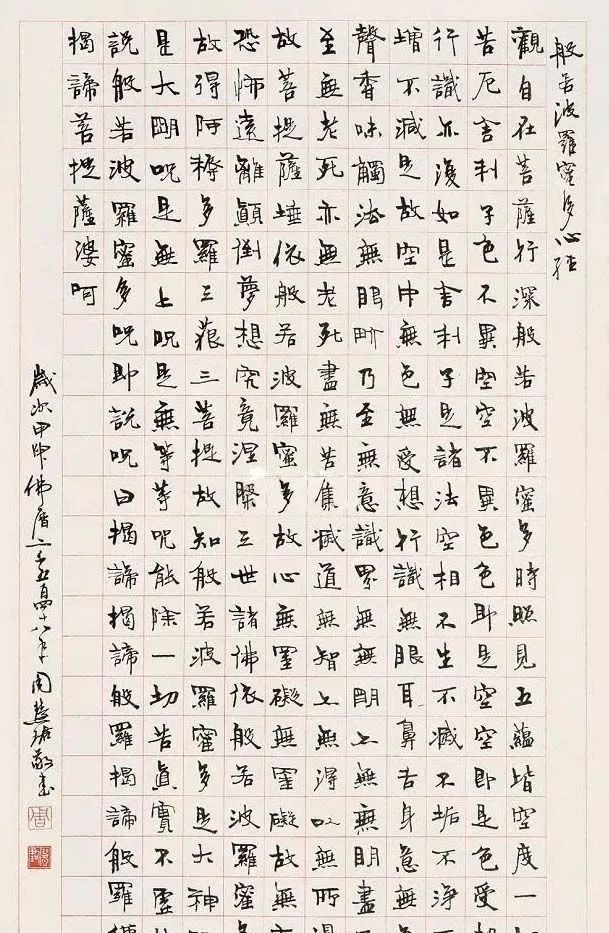 般若波羅蜜多心經
觀自在菩薩行深般若波羅蜜多時照見五蘊皆空度一
苦厄舍利子色不異空空不異色色即是空空即是色受
行識亦復如是舍利子是諸法空相不生不滅不垢不淨
增不減是故空中無色無受想行識無眼耳鼻舌身意無
聲香味觸法無眼界乃至無意識界無無明亦無無明盡
至無老死亦無老死盡無苦集滅道無智亦無得以無所
故菩提薩埵依般若波羅蜜多故心無罣礙無罣礙故無
恐怖遠離顛倒夢想究竟涅槃三世諸佛依般若波羅蜜
故得阿耨多羅三藐三菩提故知般若波羅蜜多是大神
是大明咒是無上咒是無等等咒能除一切苦真實不虛
說般若波羅蜜多咒即說咒曰揭諦揭諦般羅揭諦般羅
揭諦菩提薩婆呵
歲次甲申佛曆二千五百四十八年周慧珺敬書
周